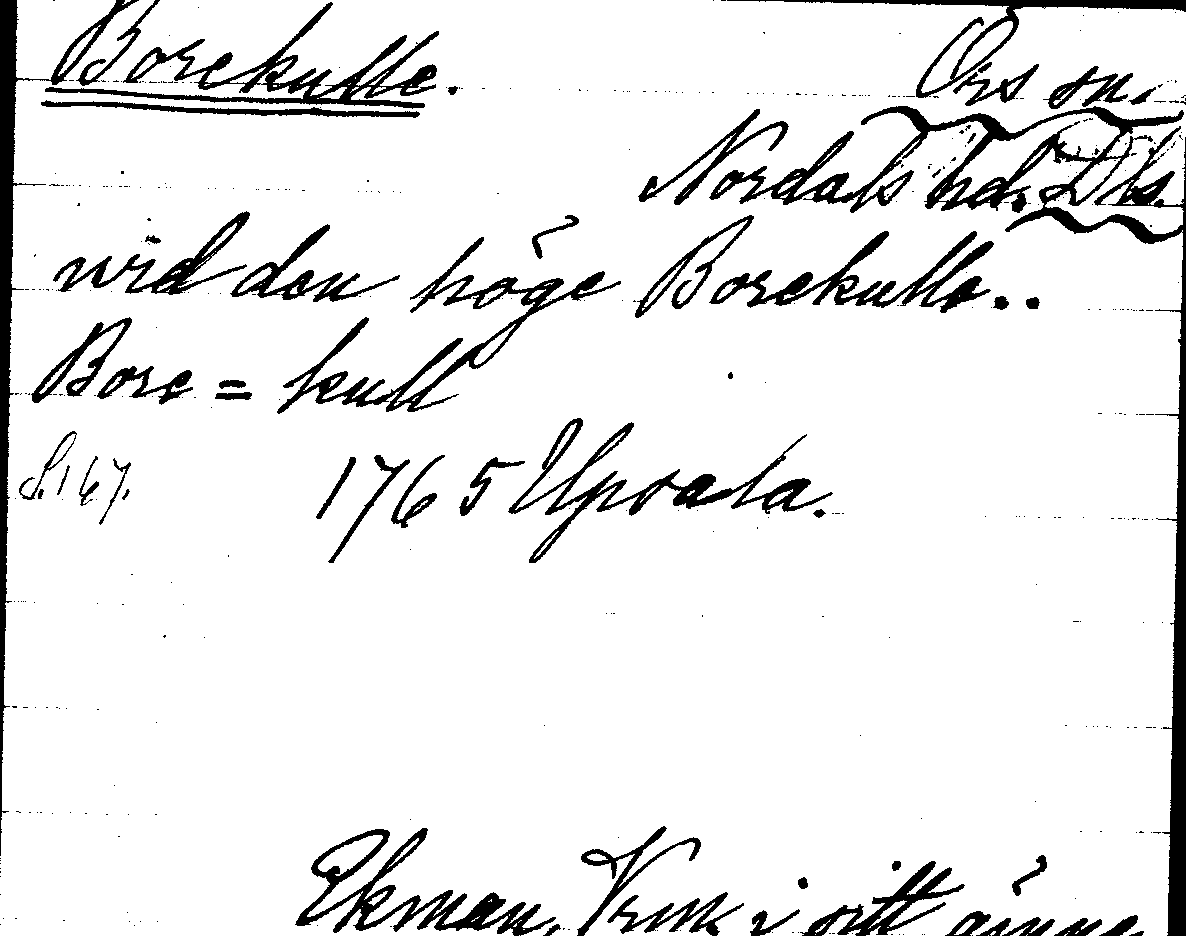 Borekulle. Örs sn.
Nordals hd. Dls.
wid den höge Borekulle..
Bore = kull
S. 167. 1765 Upsala.
Ekman, Vrml. i sitt ämne